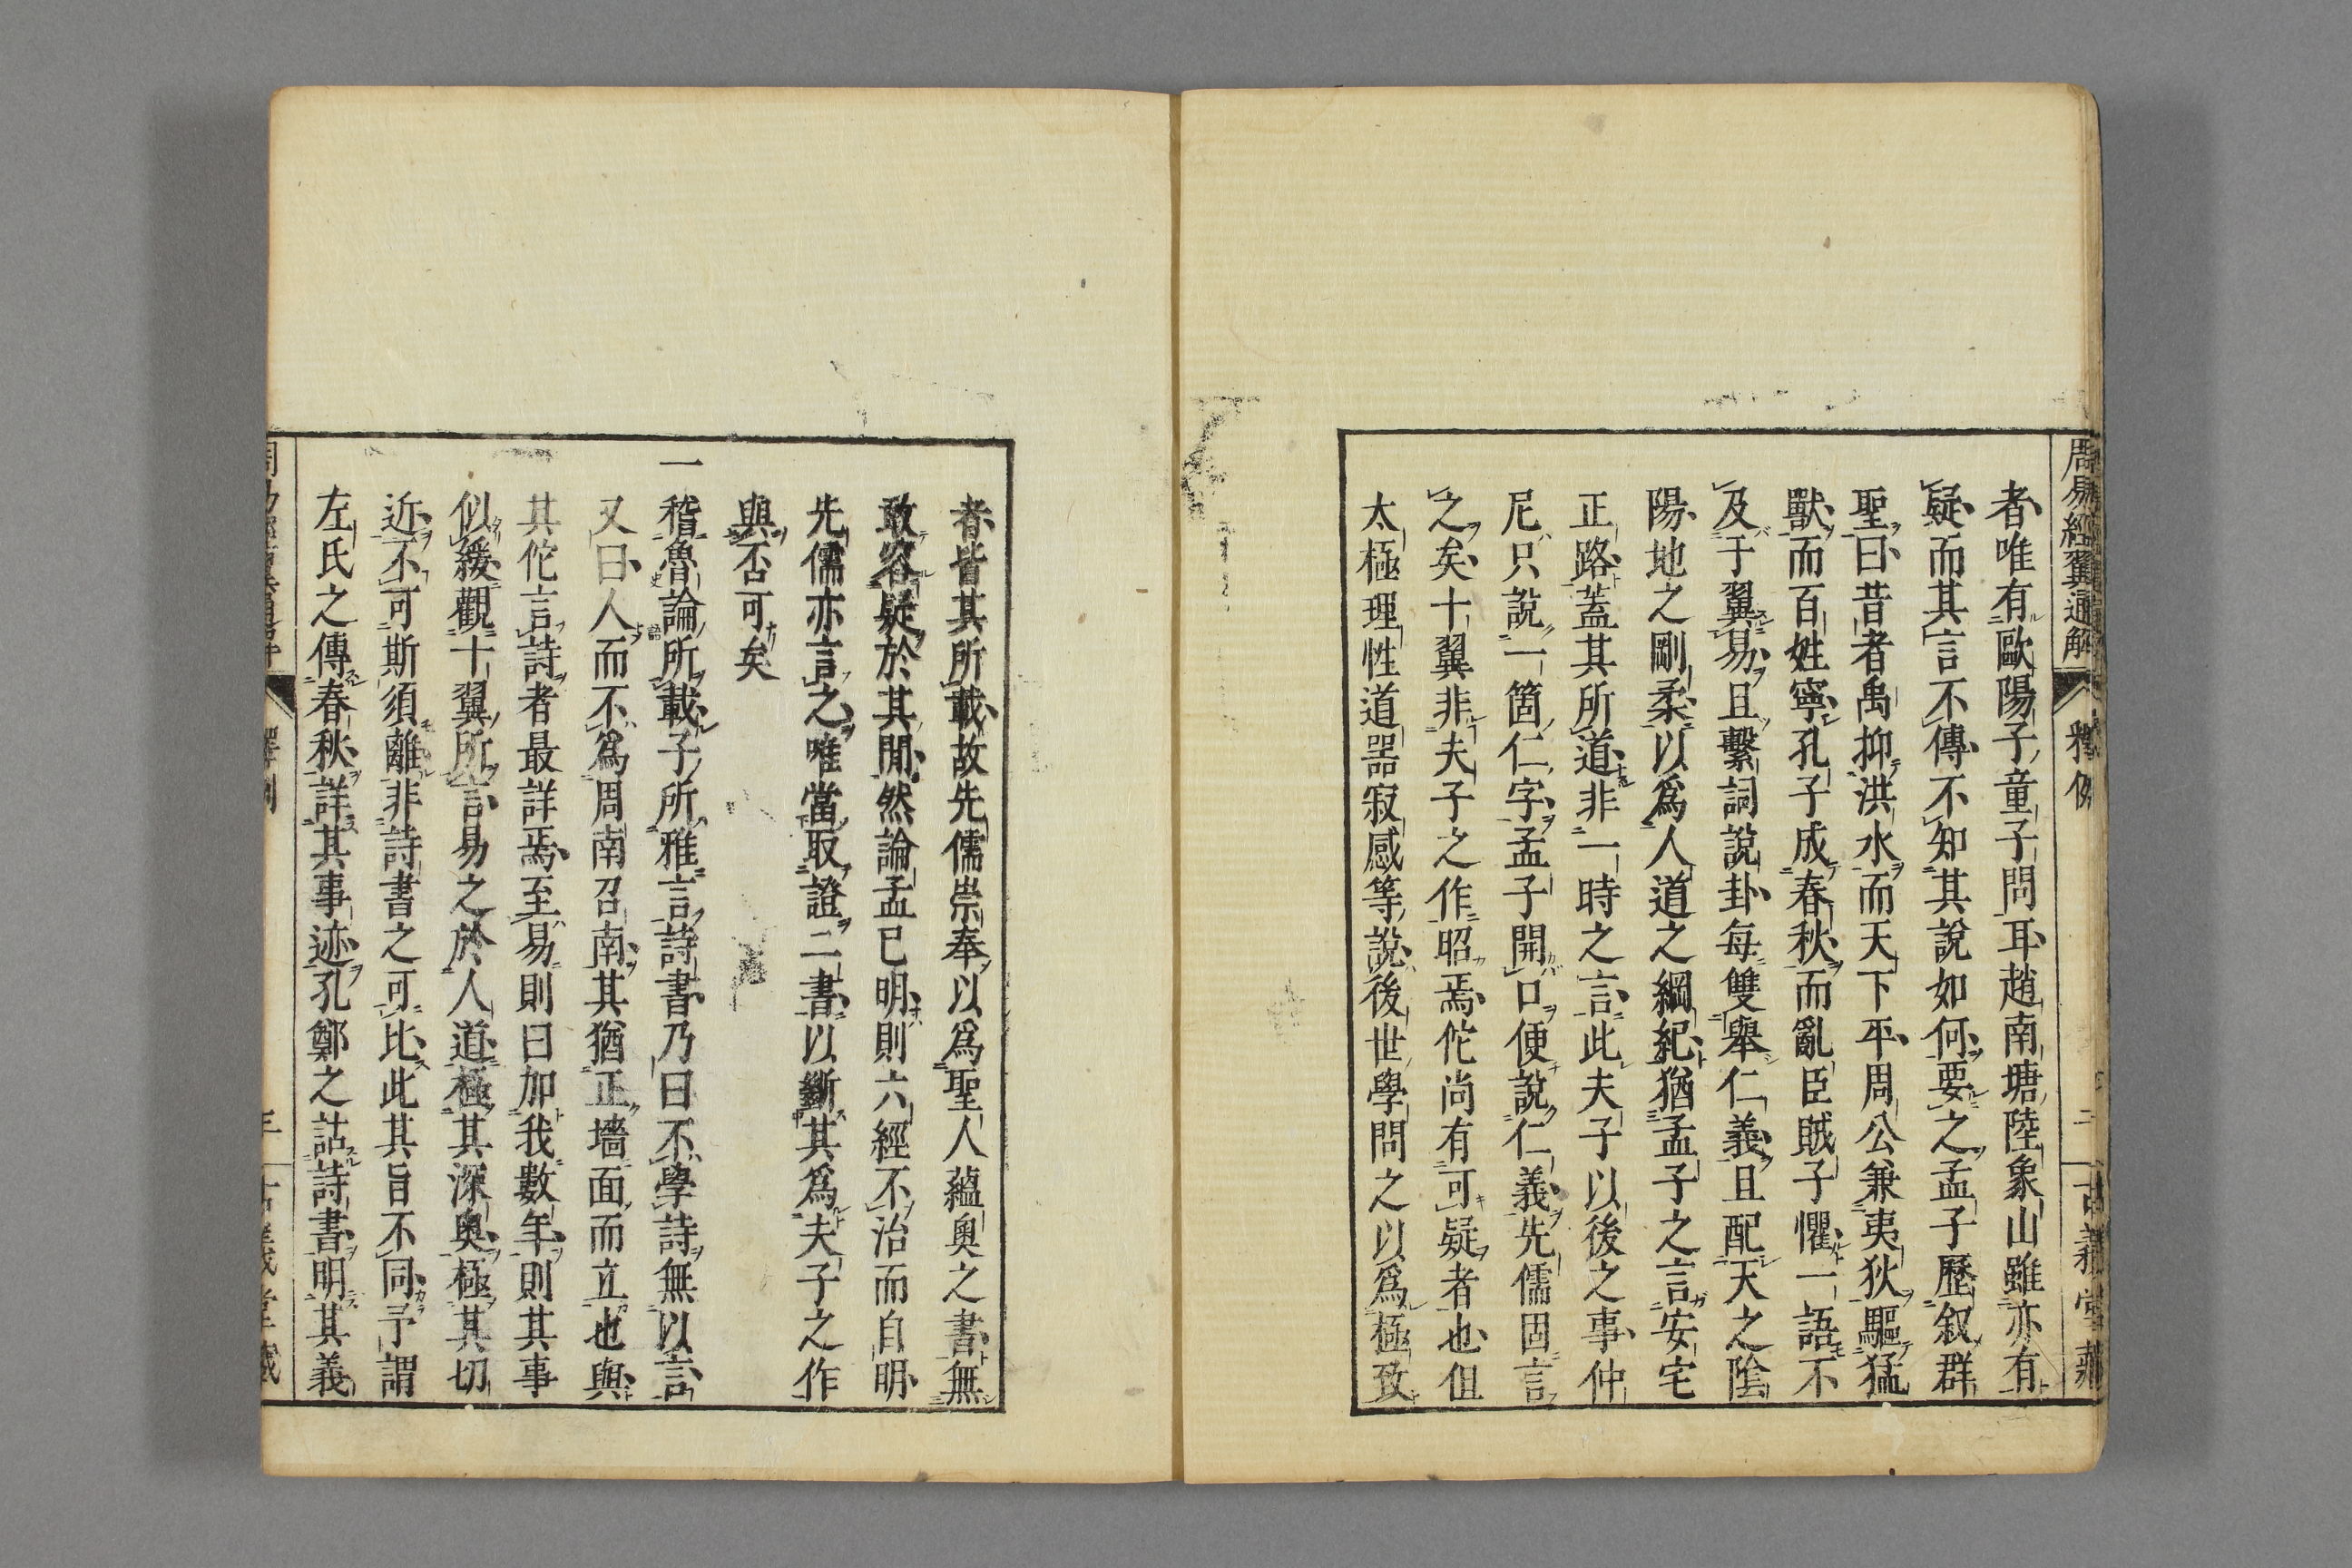 周易經翼通解 釋例 二 古義堂藏
者唯有歐陽子童子問耳趙南塘陸象山雖亦有
疑而其言不傳不知其說如何要之孟子歷叙群
聖曰昔者禹抑洪水而天下平周公兼夷狄驅猛
獸而百姓寧孔子成春秋而亂臣賊子懼一語不
及于翼易且繫詞說卦每雙舉仁義且配天之陰
陽地之剛柔以爲人道之綱紀猶孟子之言安宅
正路蓋其所道非一時之言此夫子以後之事仲
尼只說一箇仁字孟子開口便說仁義先儒固言
之矣十翼非夫子之作昭焉佗尚有可疑者也但
太極理性道器寂感等說後世學問之以爲極致
者皆其所載故先儒崇奉以爲聖人蘊奧之書無
敢容疑於其間然論孟已明則六經不治而自明
先儒亦言之唯當取證二書以斷其爲夫子之作
與否可矣
一稽魯論所載子所雅言詩書乃曰不學詩無以言
又曰人而不爲周南召南其猶正墻面而立也與
其佗言詩者最詳焉至易則曰加我數年則其事
似緩觀十翼所言易之於人道極其深奧極其切
近不可斯須離非詩書之可比此其旨不同予謂
左氏之傳春秋詳其事迹孔鄭之詁詩書明其義